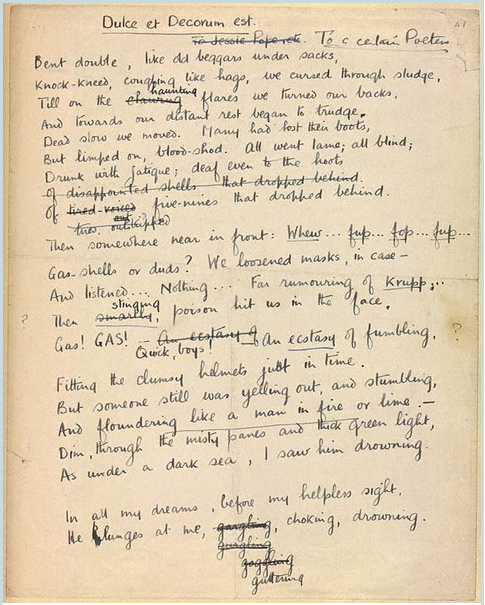 41
Dulce et Decorum est.
To Jessie Pope etc. To a certain Poetess.
Bent double, like old beggars under sacks,
Knock-kneed, coughing like hags, we cursed through sludge,
haunting
Till on the clawing flares we turned our backs,
And towards our distant rest began to trudge.
Dead slow we moved. Many had lost their boots,
But limped on, blood-shod. All went lame; all blind;
Drunk with fatigue; deaf even to the hoots
of disappointed shells that dropped behind.
Of tired-voiced five-nines that dropped behind.
tired, outstripped
Then somewhere near in front: Whew... fup... fop... fup...
Gas-shells or duds? We loosened masks, in case –
And listened... Nothing... Far rumouring of Krupp;..
stinging
? Then smartly, poison hit us in the face.
Gas! GAS! – An ecstasy of An ecstasy of fumbling, ?
Quick, boys!
Fitting the clumsy helmets just in time.
But someone still was yelling out, and stumbling,
And floundering like a man in fire or lime. –
Dim, through the misty panes and thick green light,
As under a dark sea, I saw him drowning.
In all my dreams, before my helpless sight,
He plunges at me, gargling, choking, drowning.
gurgling
goggling
guttering